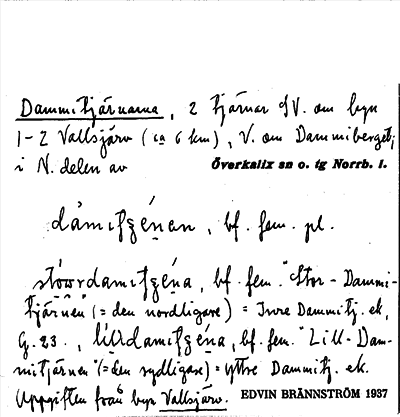 Dammitjärnarna, 2 tjärnar SV. om byn
1-2 Vallsjärv (ca 6 km), V. om Dammiberget;
i N. delen av Överkalix sn o. tg Norrb. l.
dàmitʒénen, bf. fem. pl.
stówrdamitʒéna, bf. fem. "Stor-Dammi-
tjärnen" (= den nordligare) = Inre Dammitj. ek.
G. 23., lílldamitʒéna, bf. fem. "Lill-Dam-
mitjärnen" (= den sydligare) = yttre Dammitj. ek.
Uppgiften från byn Vallsjärv. EDVIN BRÄNNSTRÖM 1937